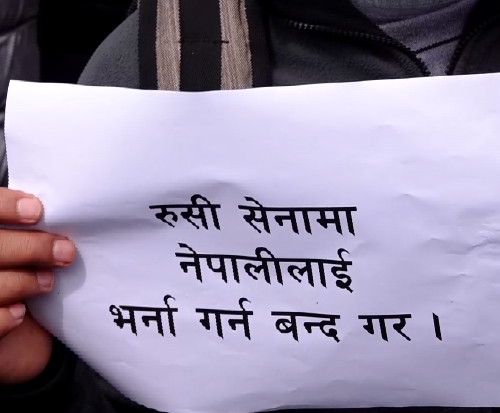 रुसी सेनामा
नेपालीलाई
भर्ना गर्न बन्द गर ।